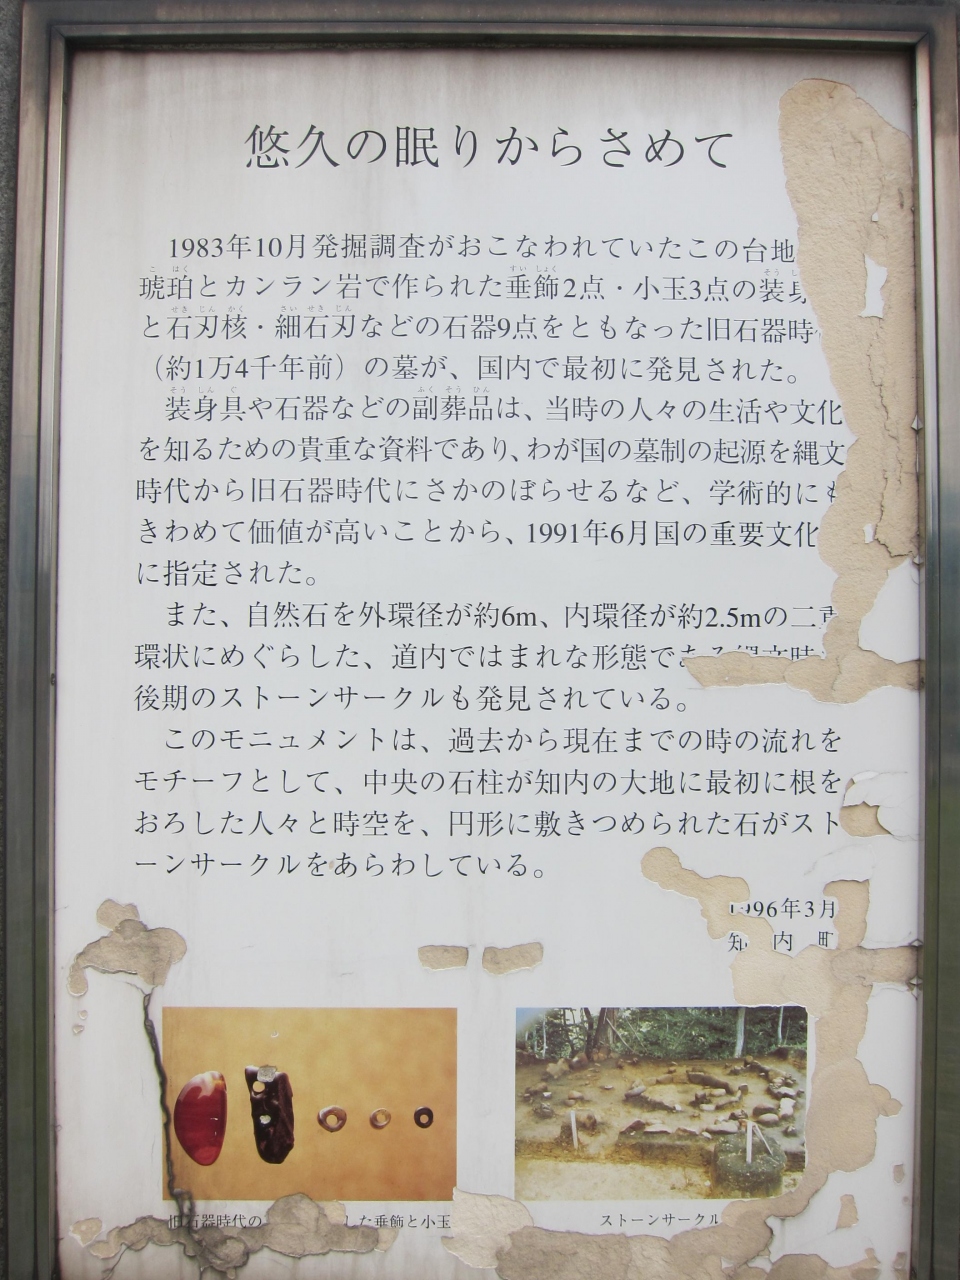 悠久の眠りからさめて
1983年10月発掘調査がおこなわれていたこの台地
琥珀とカンラン岩で作られた垂飾2点・小玉3点の装身
と石刃核・細石刃などの石器9点をともなった旧石器時
（約1万4千年前）の墓が、国内で最初に発見された。
装身具や石器などの副葬品は、当時の人々の生活や文化
を知るための貴重な資料であり、わが国の墓制の起源を縄文
時代から旧石器時代にさかのぼらせるなど、学術的にも
きわめて価値が高いことから、1991年6月国の重要文化
に指定された。
また、自然石を外環径が約6m、内環径が約2.5mの二重
環状にめぐらした、道内ではまれな形態である縄文時
後期のストーンサークルも発見されている。
このモニュメントは、過去から現在までの時の流れを
モチーフとして、中央の石柱が知内の大地に最初に根を
おろした人々と時空を、円形に敷きつめられた石がスト
ーンサークルをあらわしている。
1996年3月
知内町
旧石器時代の した垂飾と小玉
ストーンサークル